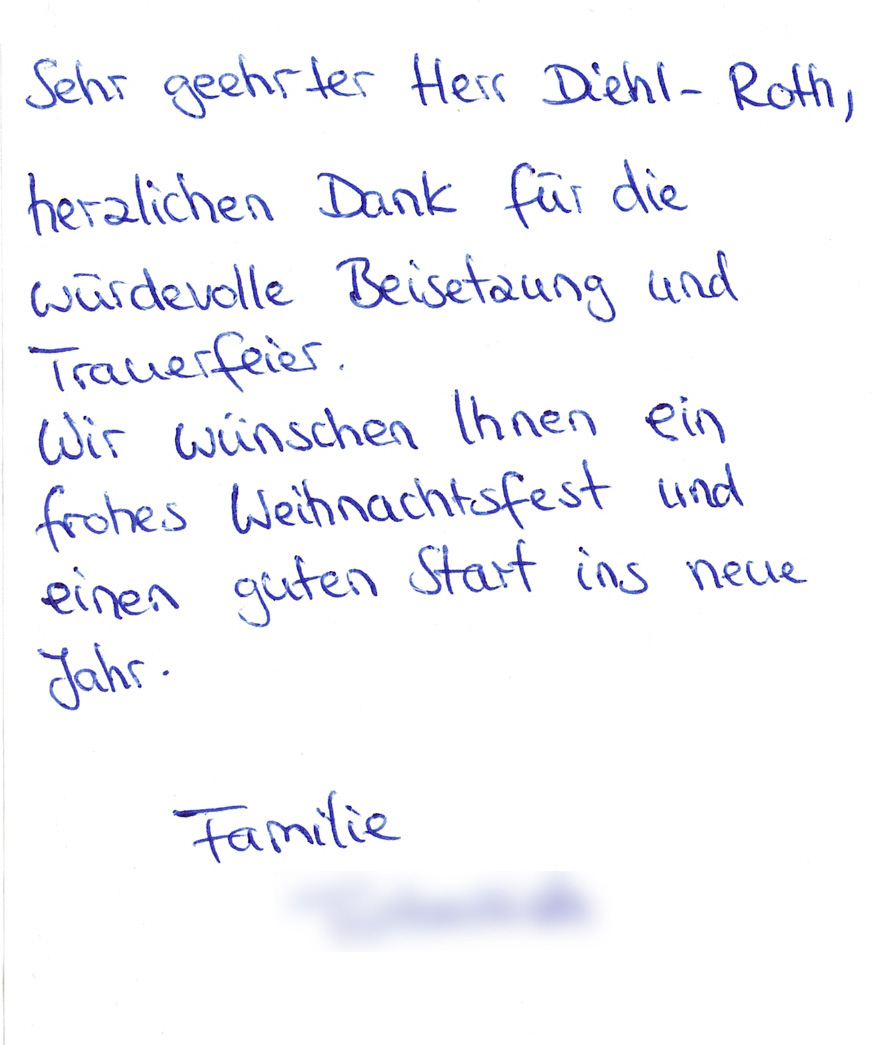 Sehr geehrter Herr Diehl-Roth,
herzlichen Dank für die
würdevolle Beisetzung und
Trauerfeier.
Wir wünschen Ihnen ein
frohes Weihnachtsfest und
einen guten Start ins neue
Jahr.
Familie